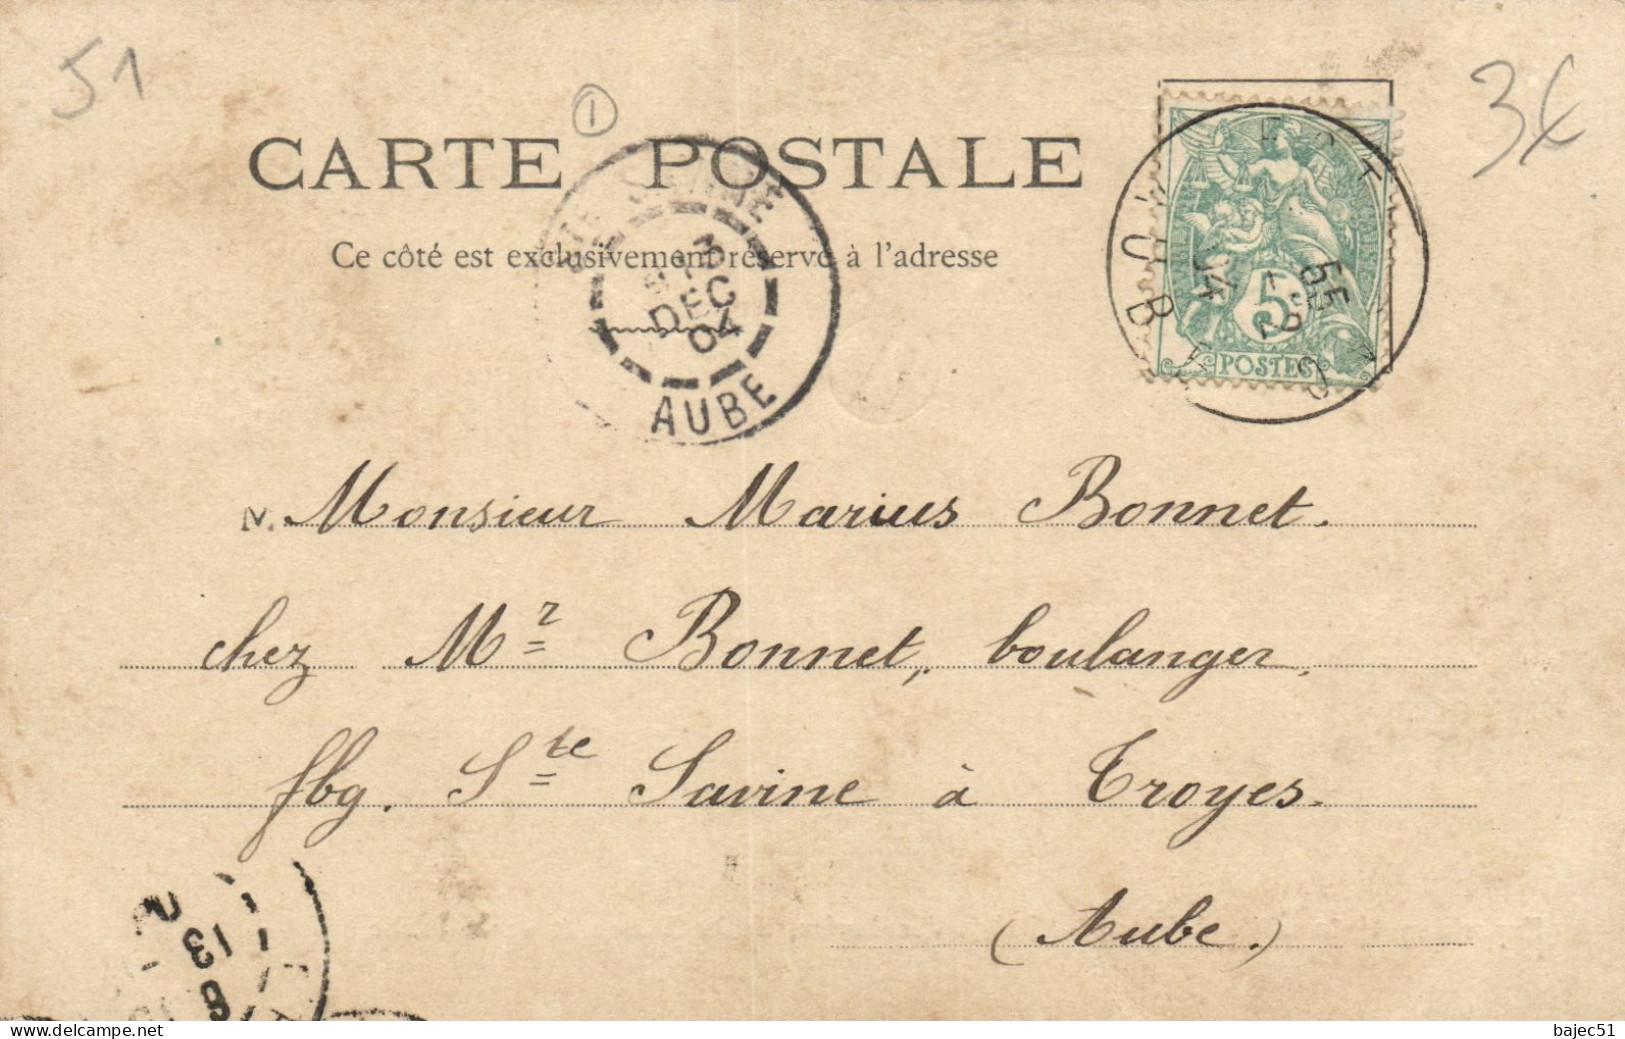 51
1
3€
CARTE POSTALE
Ce côté est exclusivement réservé à l'adresse
3
DEC
04
AUBE
5
POSTES
M. Monsieur Marius Bonnet.
chez Mr Bonnet, boulanger,
fbg. Ste Savine à Troyes.
(Aube.)
13
delcampe.net
bajec51